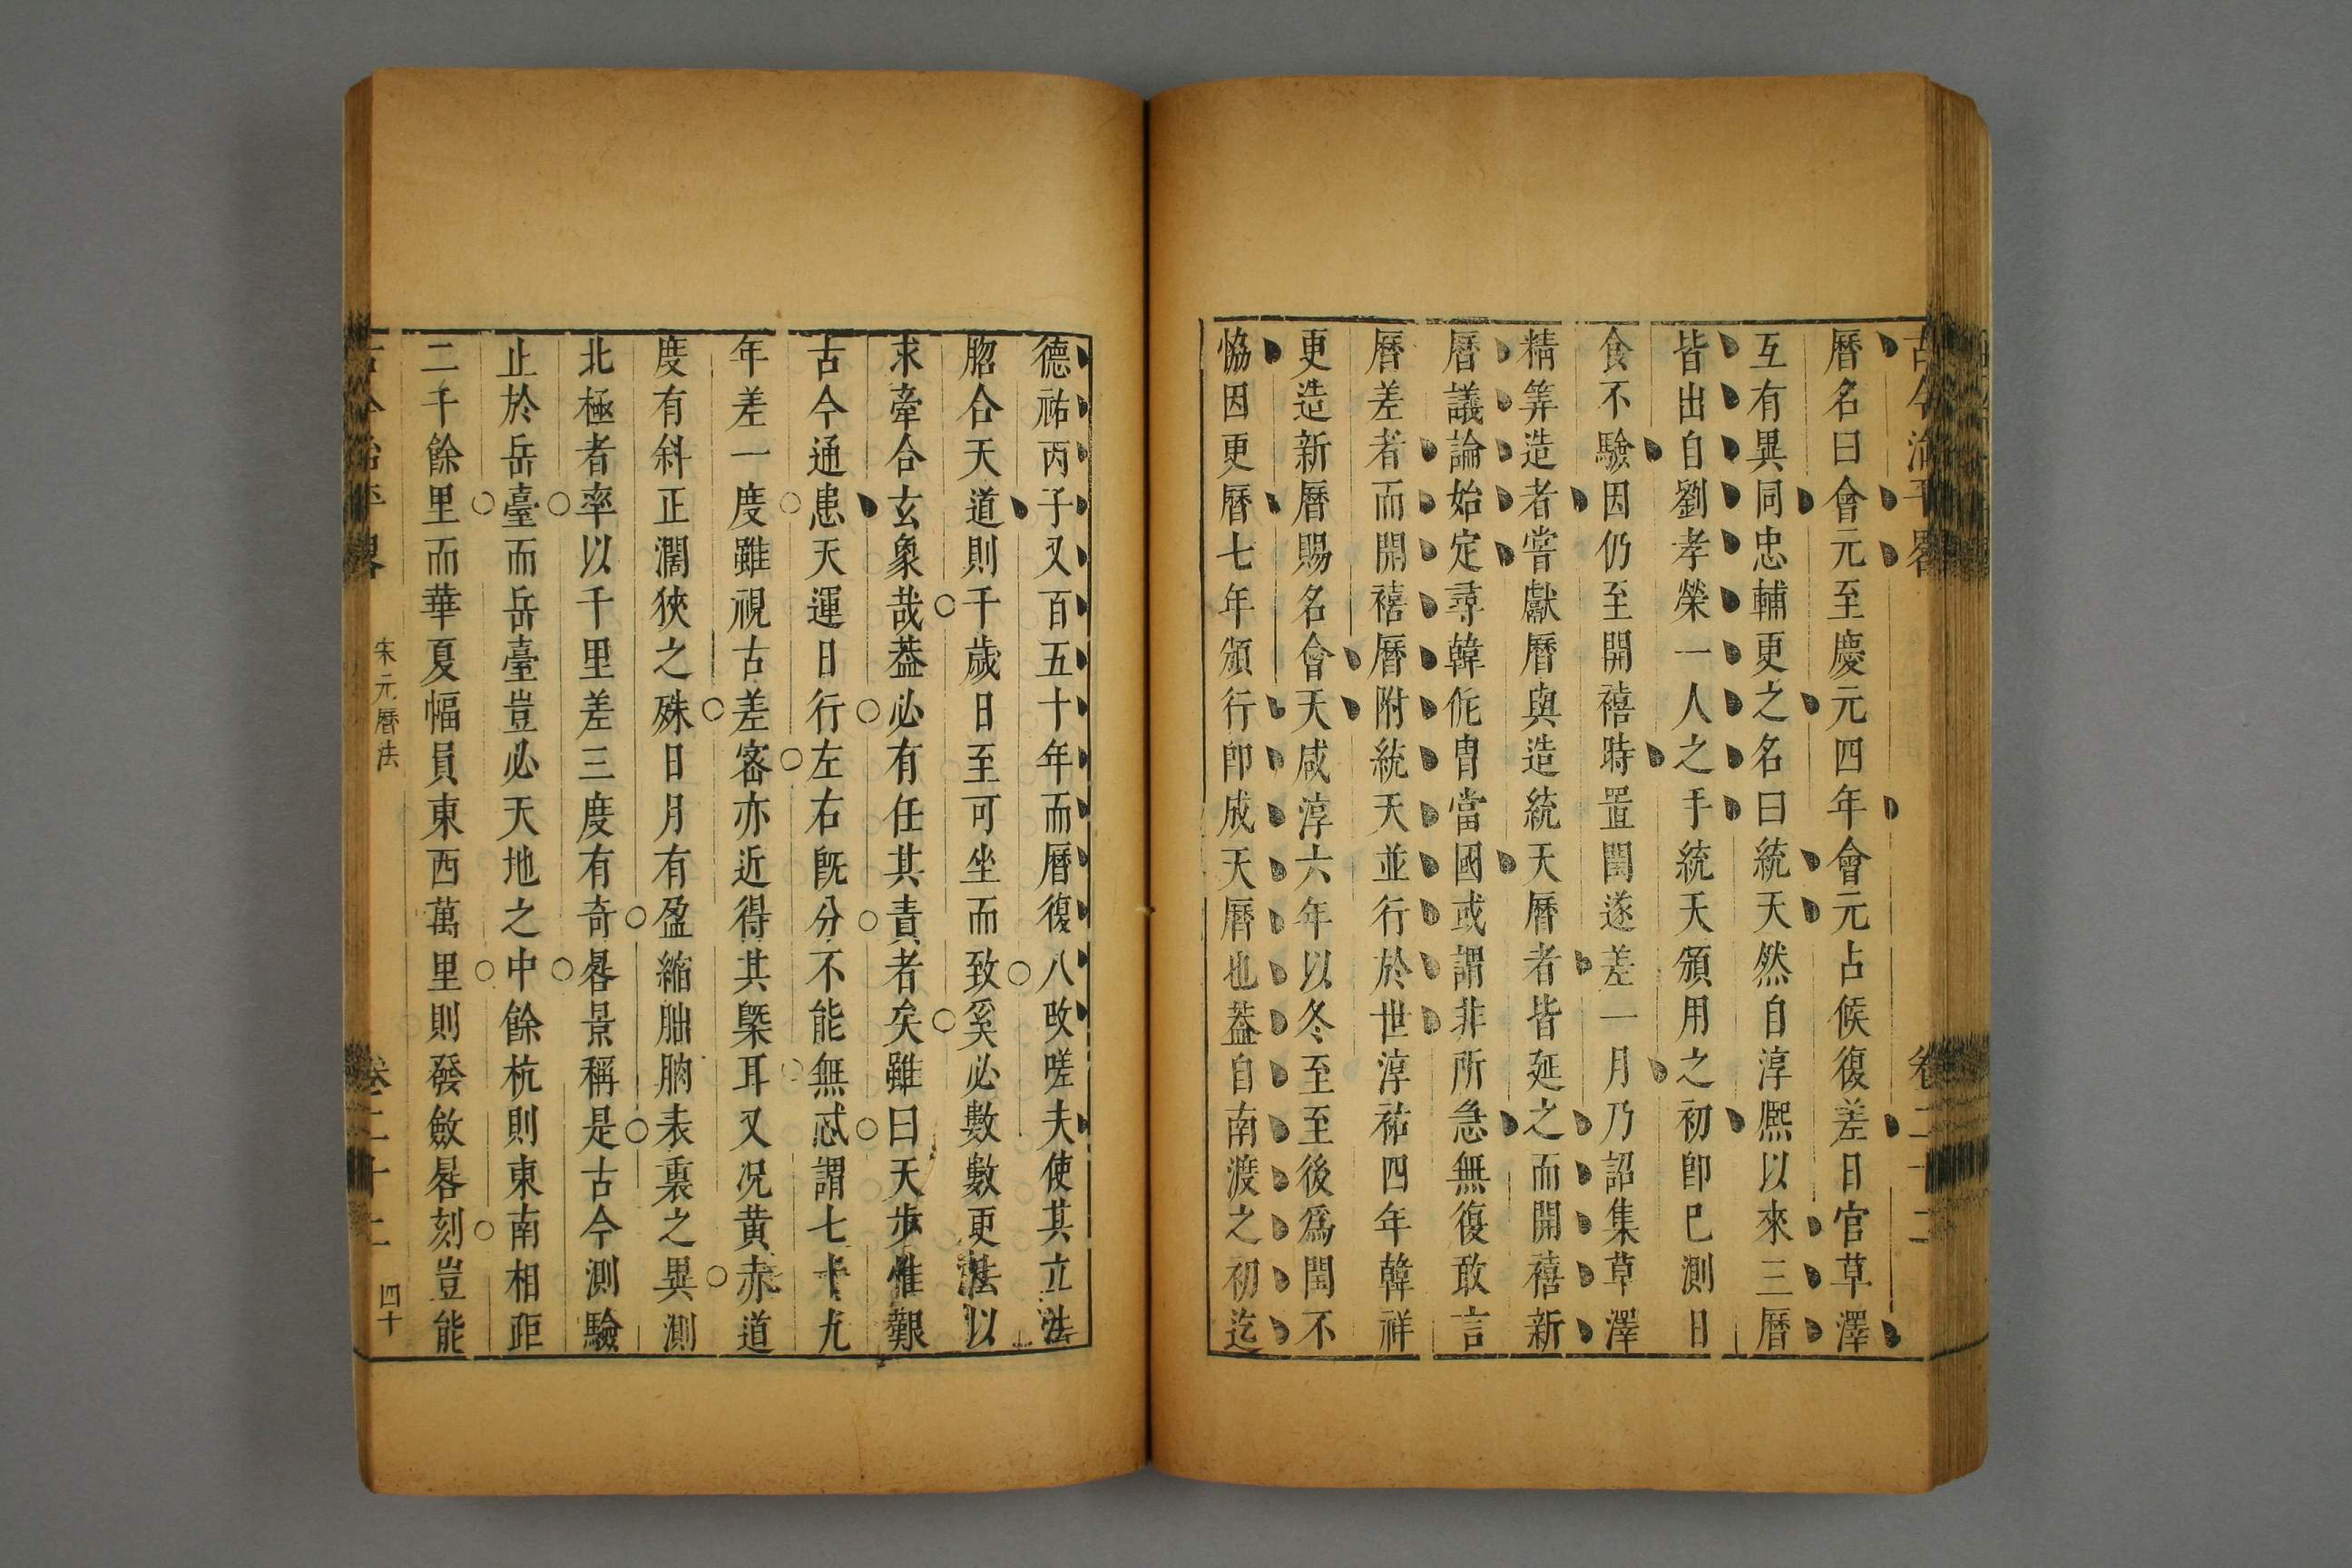 古今治平畧
卷二十二
曆名曰會元至慶元四年會元占候復差日官草澤
互有異同忠輔更之名曰統天然自淳熈以來三曆
皆出自劉孝榮一人之手統天頒用之初卽巳測日
食不驗因仍至開禧時置閏遂差一月乃詔集草澤
精筭造者嘗獻曆與造統天曆者皆延之而開禧新
曆議論始定尋韓侂胄當國或謂非所急無復敢言
曆差者而開禧曆附統天並行於世淳祐四年韓祥
更造新曆賜名會天咸淳六年以冬至至後爲閏不
恊因更曆七年頒行卽成天曆也葢自南渡之初迄
德祐丙子又百五十年而曆復八改嗟夫使其立法
脗合天道則千歲日至可坐而致奚必數數更法以
求牽合玄象哉葢必有任其責者矣雖曰天步惟艱
古今通患天運日行左右旣分不能無忒謂七十九
年差一度雖視古差宻亦近得其槩耳又况黃赤道
度有斜正濶狹之殊日月有盈縮朏朒表裏之異測
北極者率以千里差三度有奇晷景稱是古今測驗
止於岳臺而岳臺豈必天地之中餘杭則東南相距
二千餘里而華夏幅員東西萬里則發斂晷刻豈能
古今治平畧
宋元曆法
卷二十二
四十